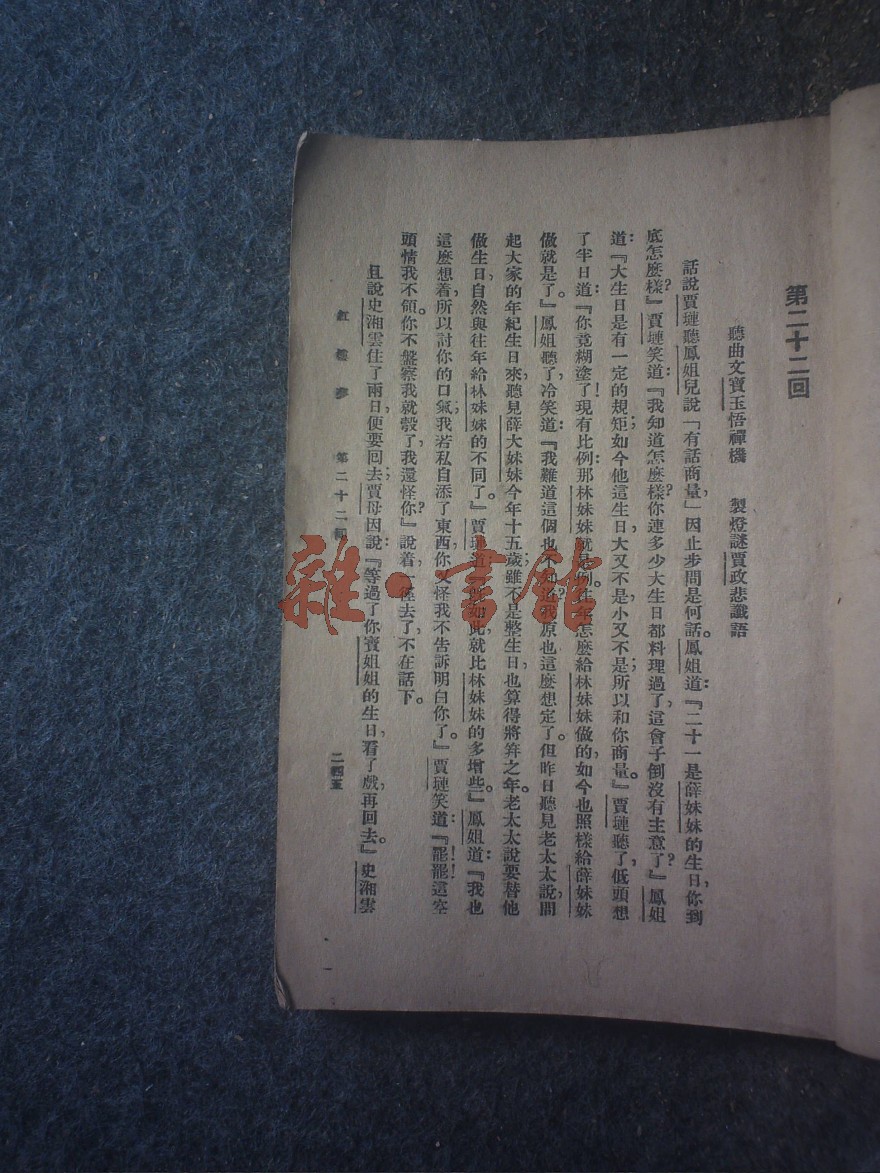 第二十二回
聽曲文寶玉悟禪機　製燈謎賈政悲讖語
話說賈璉聽鳳姐兒說「有話商量，」因止步問是何話。鳳姐道：『二十一是薛妹妹的生日，你到
底怎麼樣？』賈璉笑道：『我知道怎麼樣？你連多少大生日都料理過了，這會子倒沒有主意了？』鳳姐
道：『大生日是有一定的規矩；如今他這生日，大又不是，小又不是；所以和你商量。』賈璉聽了，低頭想
了半日，道：『你竟糊塗了！現有比例：那林妹妹就是例。往年怎麼給林妹妹做的，如今也照樣給薛妹妹
做就是了。』鳳姐聽了，冷笑道：『我難道這個也不知道？我原也這麼想定了。但昨日聽見老太太說，問
起大家的年紀生日來，聽見薛大妹妹今年十五歲，雖不是整生日，也算得將笄之年。老太太說要替他
做生日，自然與往年給林妹妹的不同了。』賈璉道：『既如此，就比林妹妹的多增些。』鳳姐道：『我也
這麼想着，所以討你的口氣；我若私自添了東西，你又怪我不告訴明白你了。』賈璉笑道：『罷！罷！這空
頭情我不領。你不盤察我就彀了，我還怪你？』說着，一徑去了，不在話下。
且說史湘雲住了兩日，便要回去；賈母因說：『等過了你寶姐姐的生日，看了戲，再回去。』史湘雲
紅樓夢　第二十二回　二四五
雜·書館